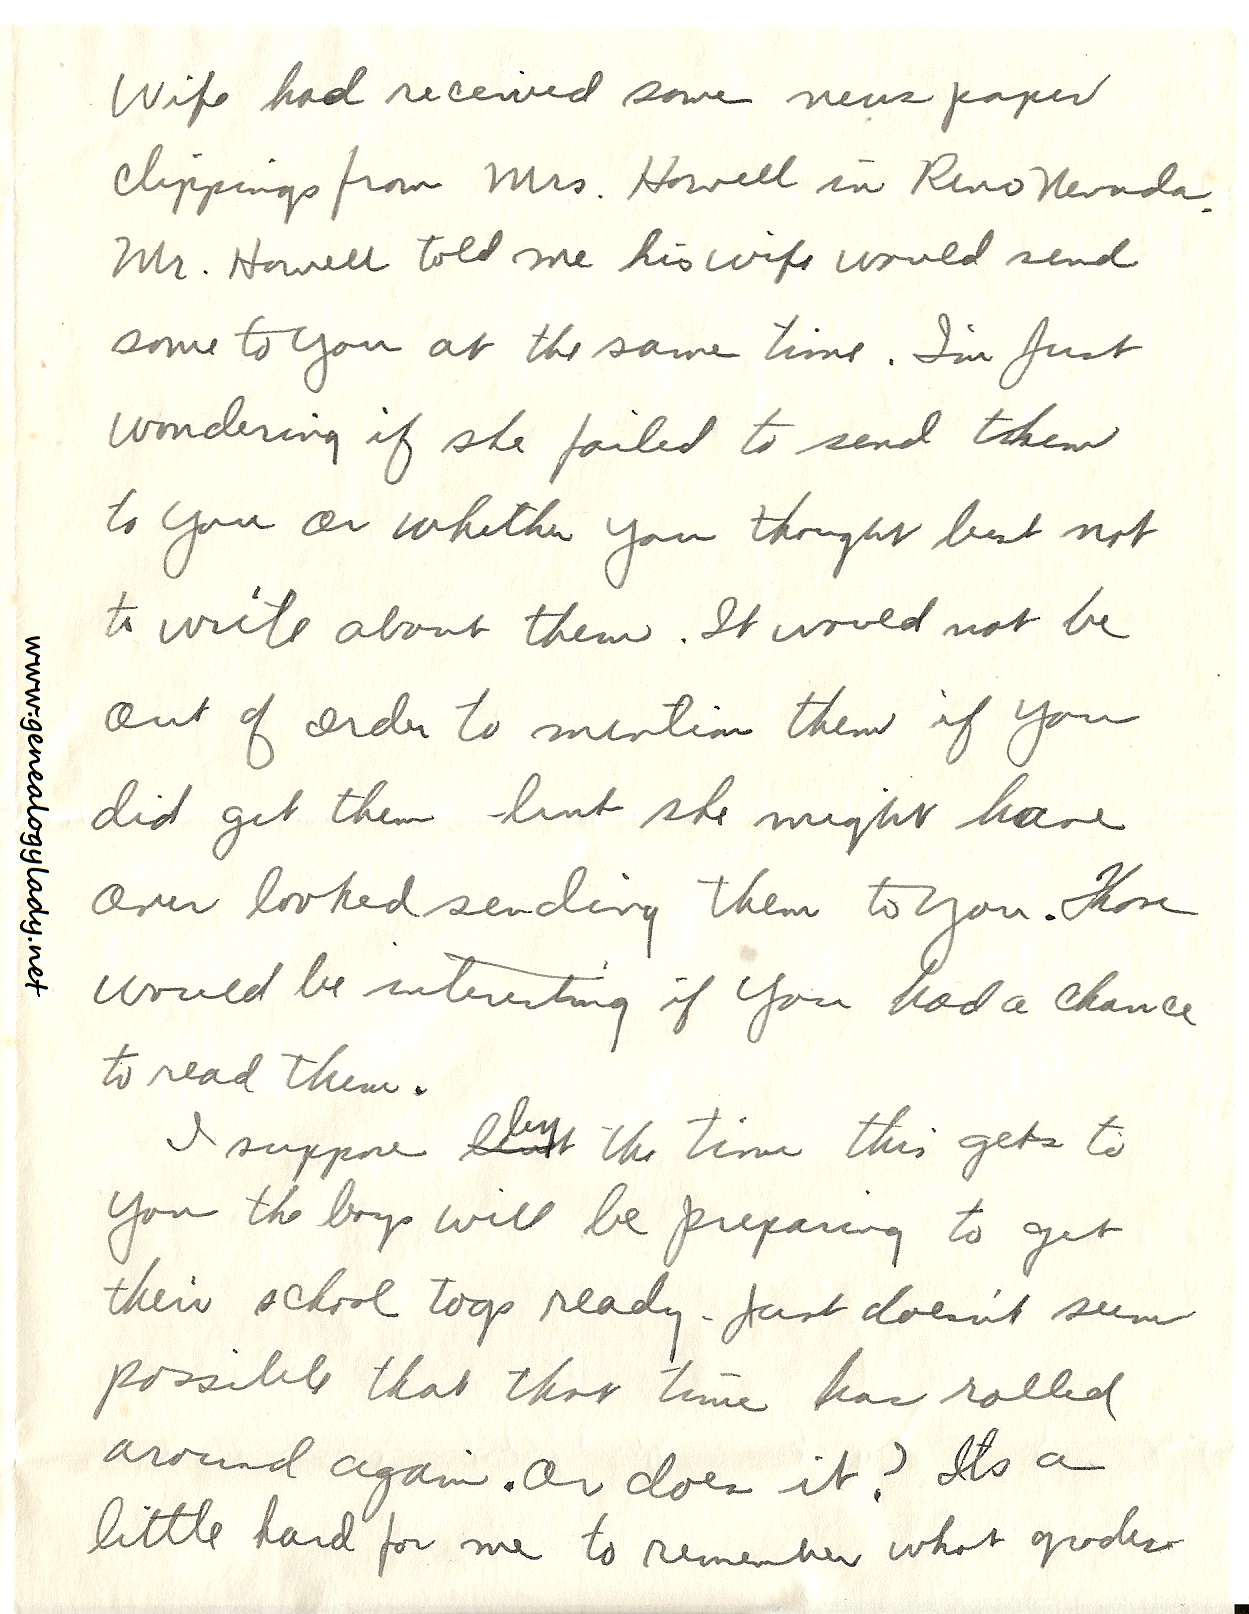 Wife had received some news paper
clippings from Mrs. Howell in Reno Nevada.
Mr. Howell told me his wife would send
some to you at the same time. I'm just
wondering if she failed to send them
to you or whether you thought best not
to write about them. It would not be
out of order to mention them if you
did get them - but she might have
over looked sending them to you. Those
would be interesting if you had a chance
to read them.
I suppose by the time this gets to
you the boys will be preparing to get
their school togs ready. Just doesn't seem
possible that that time has rolled
around again. Or does it? Its a
little hard for me to remember what grades
www.genealogylady.net